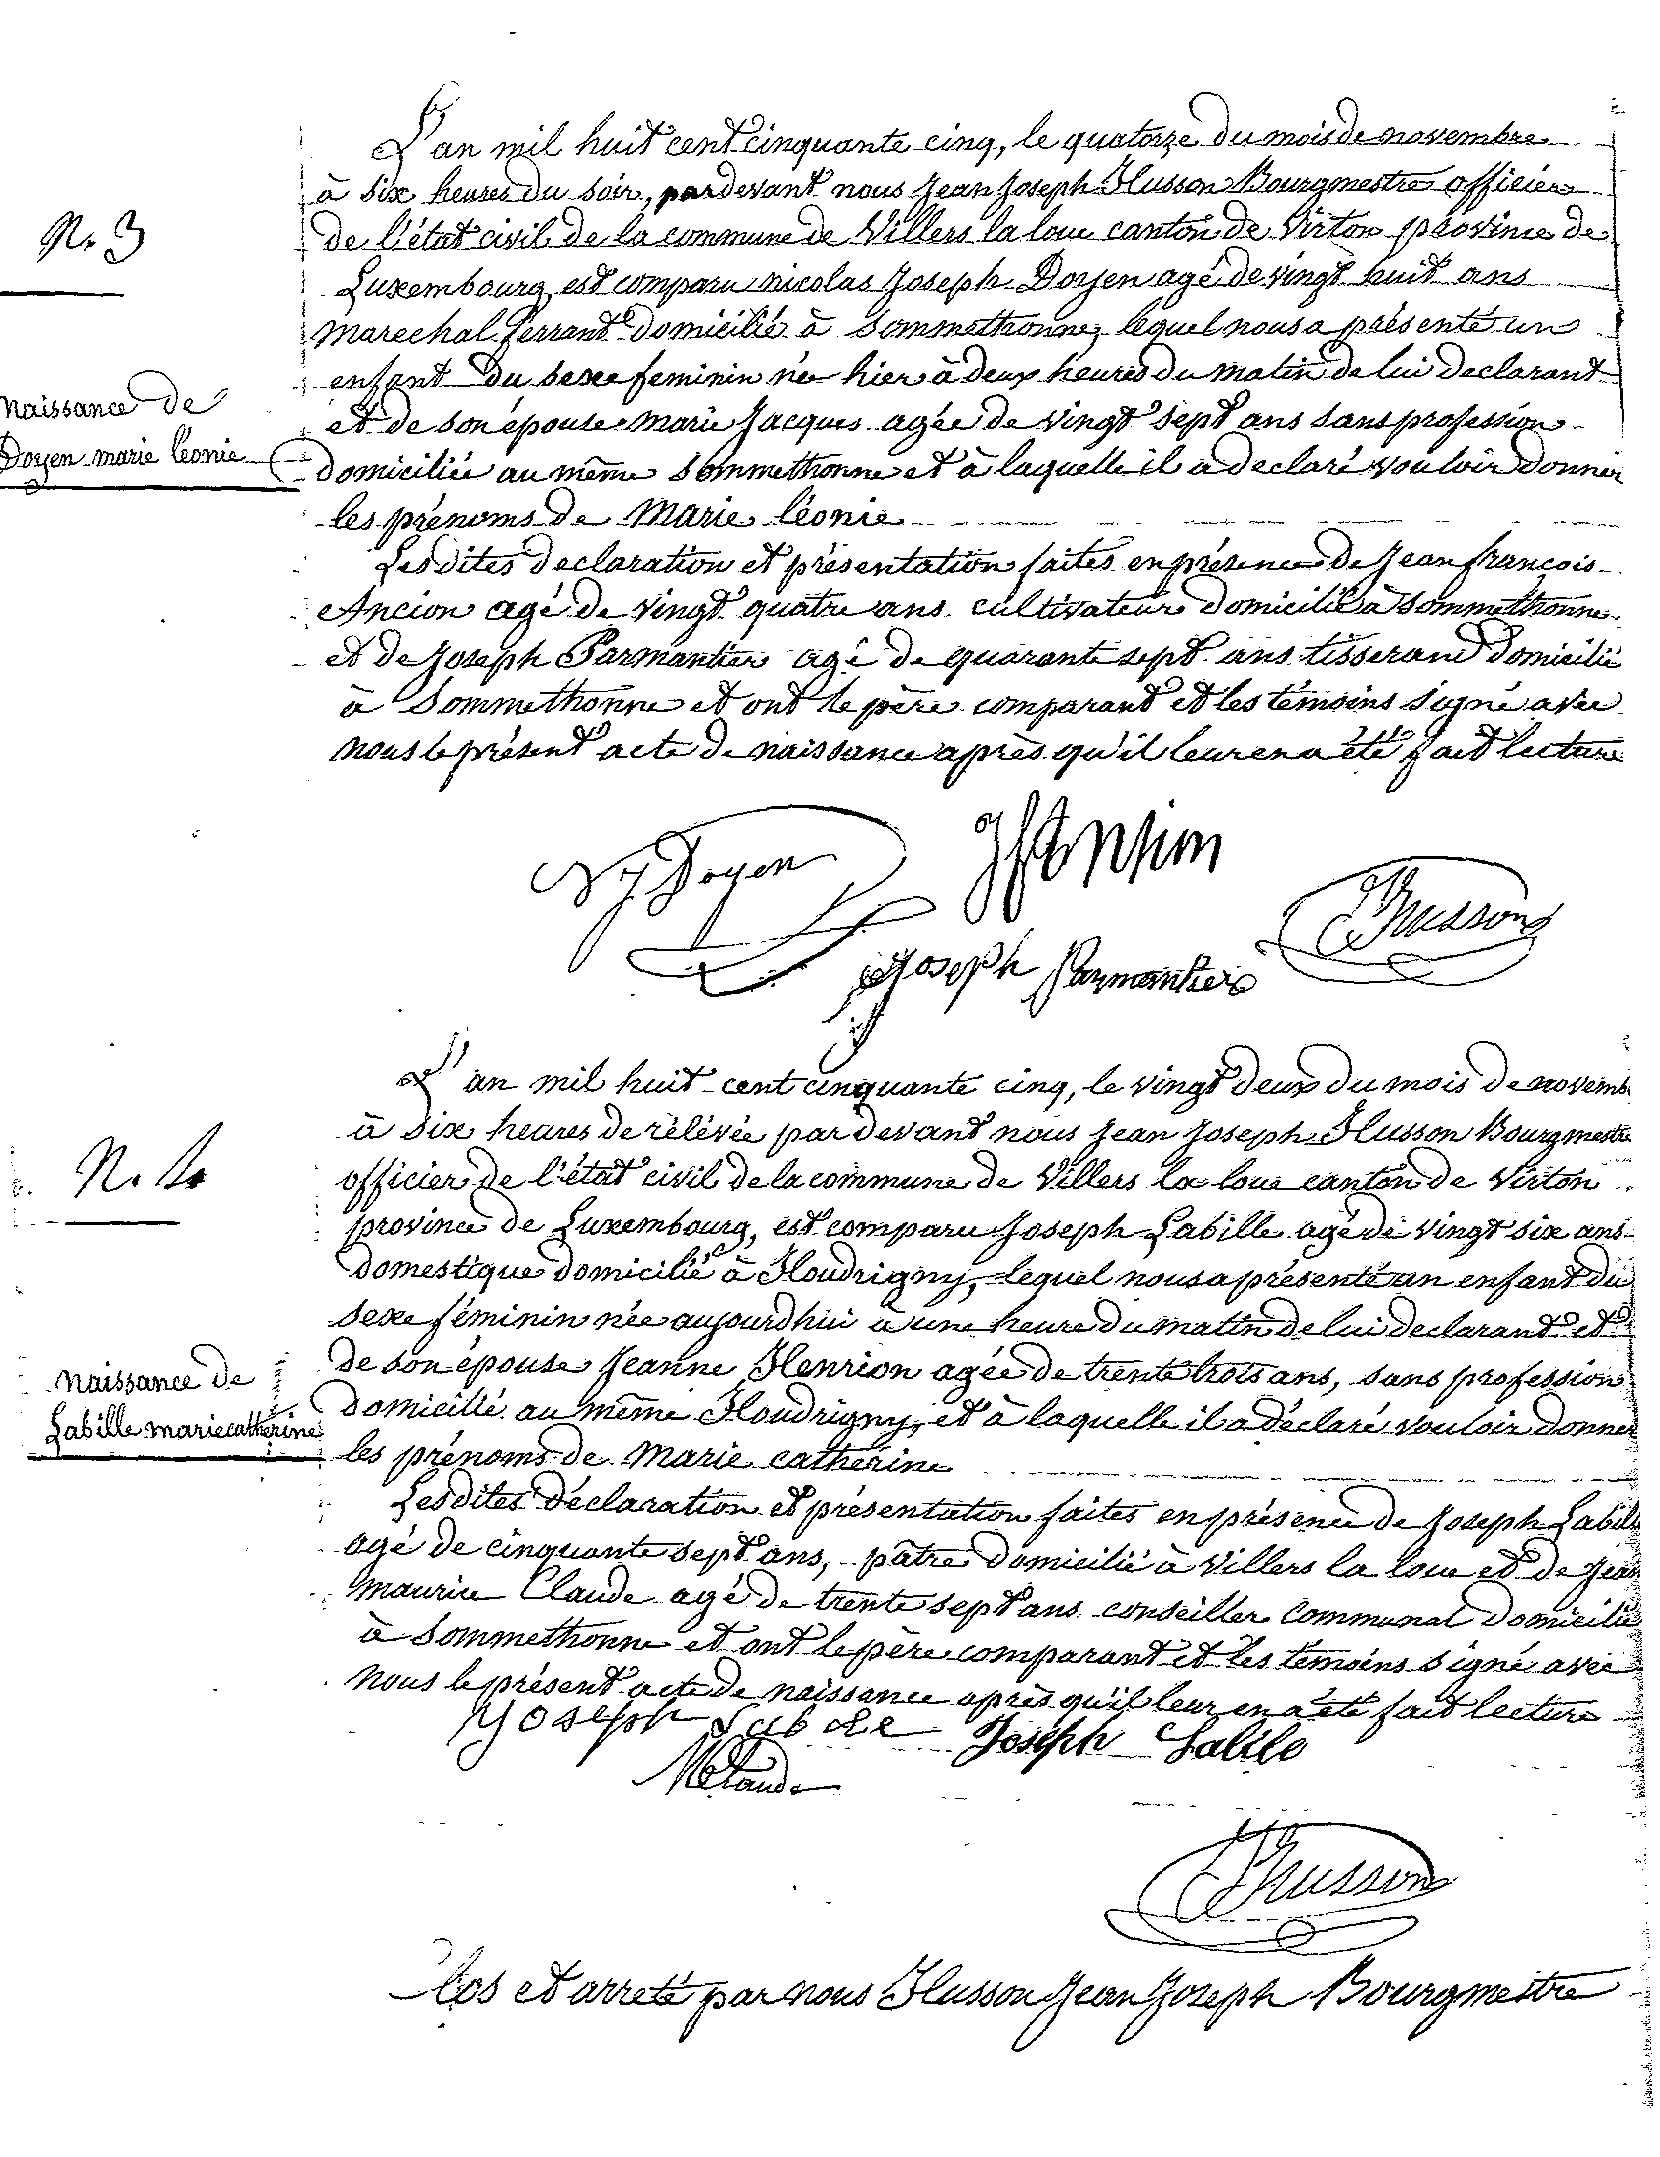 N. 3
naissance de
Doyen marie léonie
L'an mil huit cent cinquante cinq, le quatorze du mois de novembre
à six heures du soir, pardevant nous Jean Joseph Husson Bourgmestre officier
de l'état civil de la commune de Villers la loue canton de Virton province de
Luxembourg est comparu nicolas Joseph Doyen agé de vingt huit ans
marechal ferrant domicilié à Sommethonne, lequel nous a présenté un
enfant du sexe feminin née hier à deux heures du matin de lui declarant
et de son épouse marie Jacques agée de vingt sept ans sans profession
domiciliée au même Sommethonne et à laquelle il a declaré vouloir donner
les prénoms de Marie léonie
Lesdites declaration et présentation faites en présence de Jean françois
Ancion agé de vingt quatre ans cultivateur domicilié à Sommethonne
et de Joseph Parmantier agé de quarante sept ans tisserand domicilié
à Sommethonne et ont le père comparant et les témoins signé avec
nous le présent acte de naissance après qu'il leur en a été fait lecture
NJ Doyen
Joseph Parmentier
Husson
N.
naissance de
Labille marie catherine
L'an mil huit cent cinquante cinq, le vingt deux du mois de novemb
à six heures de rélévée par devant nous Jean Joseph Husson Bourgmestre
officier de l'état civil de la commune de Villers la loue canton de Virton
province de Luxembourg, est comparu Joseph Labille agé de vingt six ans
domestique domicilié à Houdrigny, lequel nous a présenté un enfant du
sexe féminin née aujourdhui à une heure du matin de lui declarant et
de son épouse Jeanne Henrion agée de trente trois ans, sans profession
domicilié au même Houdrigny, et à laquelle il a déclaré vouloir donner
les prénoms de Marie catherine
Lesdites déclaration et présentation faites en présence de Joseph Labille
agé de cinquante sept ans, pâtre domicilié à Villers la loue et de Jean
maurice Claude agé de trente sept ans conseiller communal domicilié
à Sommethonne et ont le père comparant et les témoins signé avec
nous le présent acte de naissance après qu'il leur en a été fait lecture
Joseph Labile
MClaude
Husson
Clos et arreté par nous Husson Jean Joseph Bourgmestre